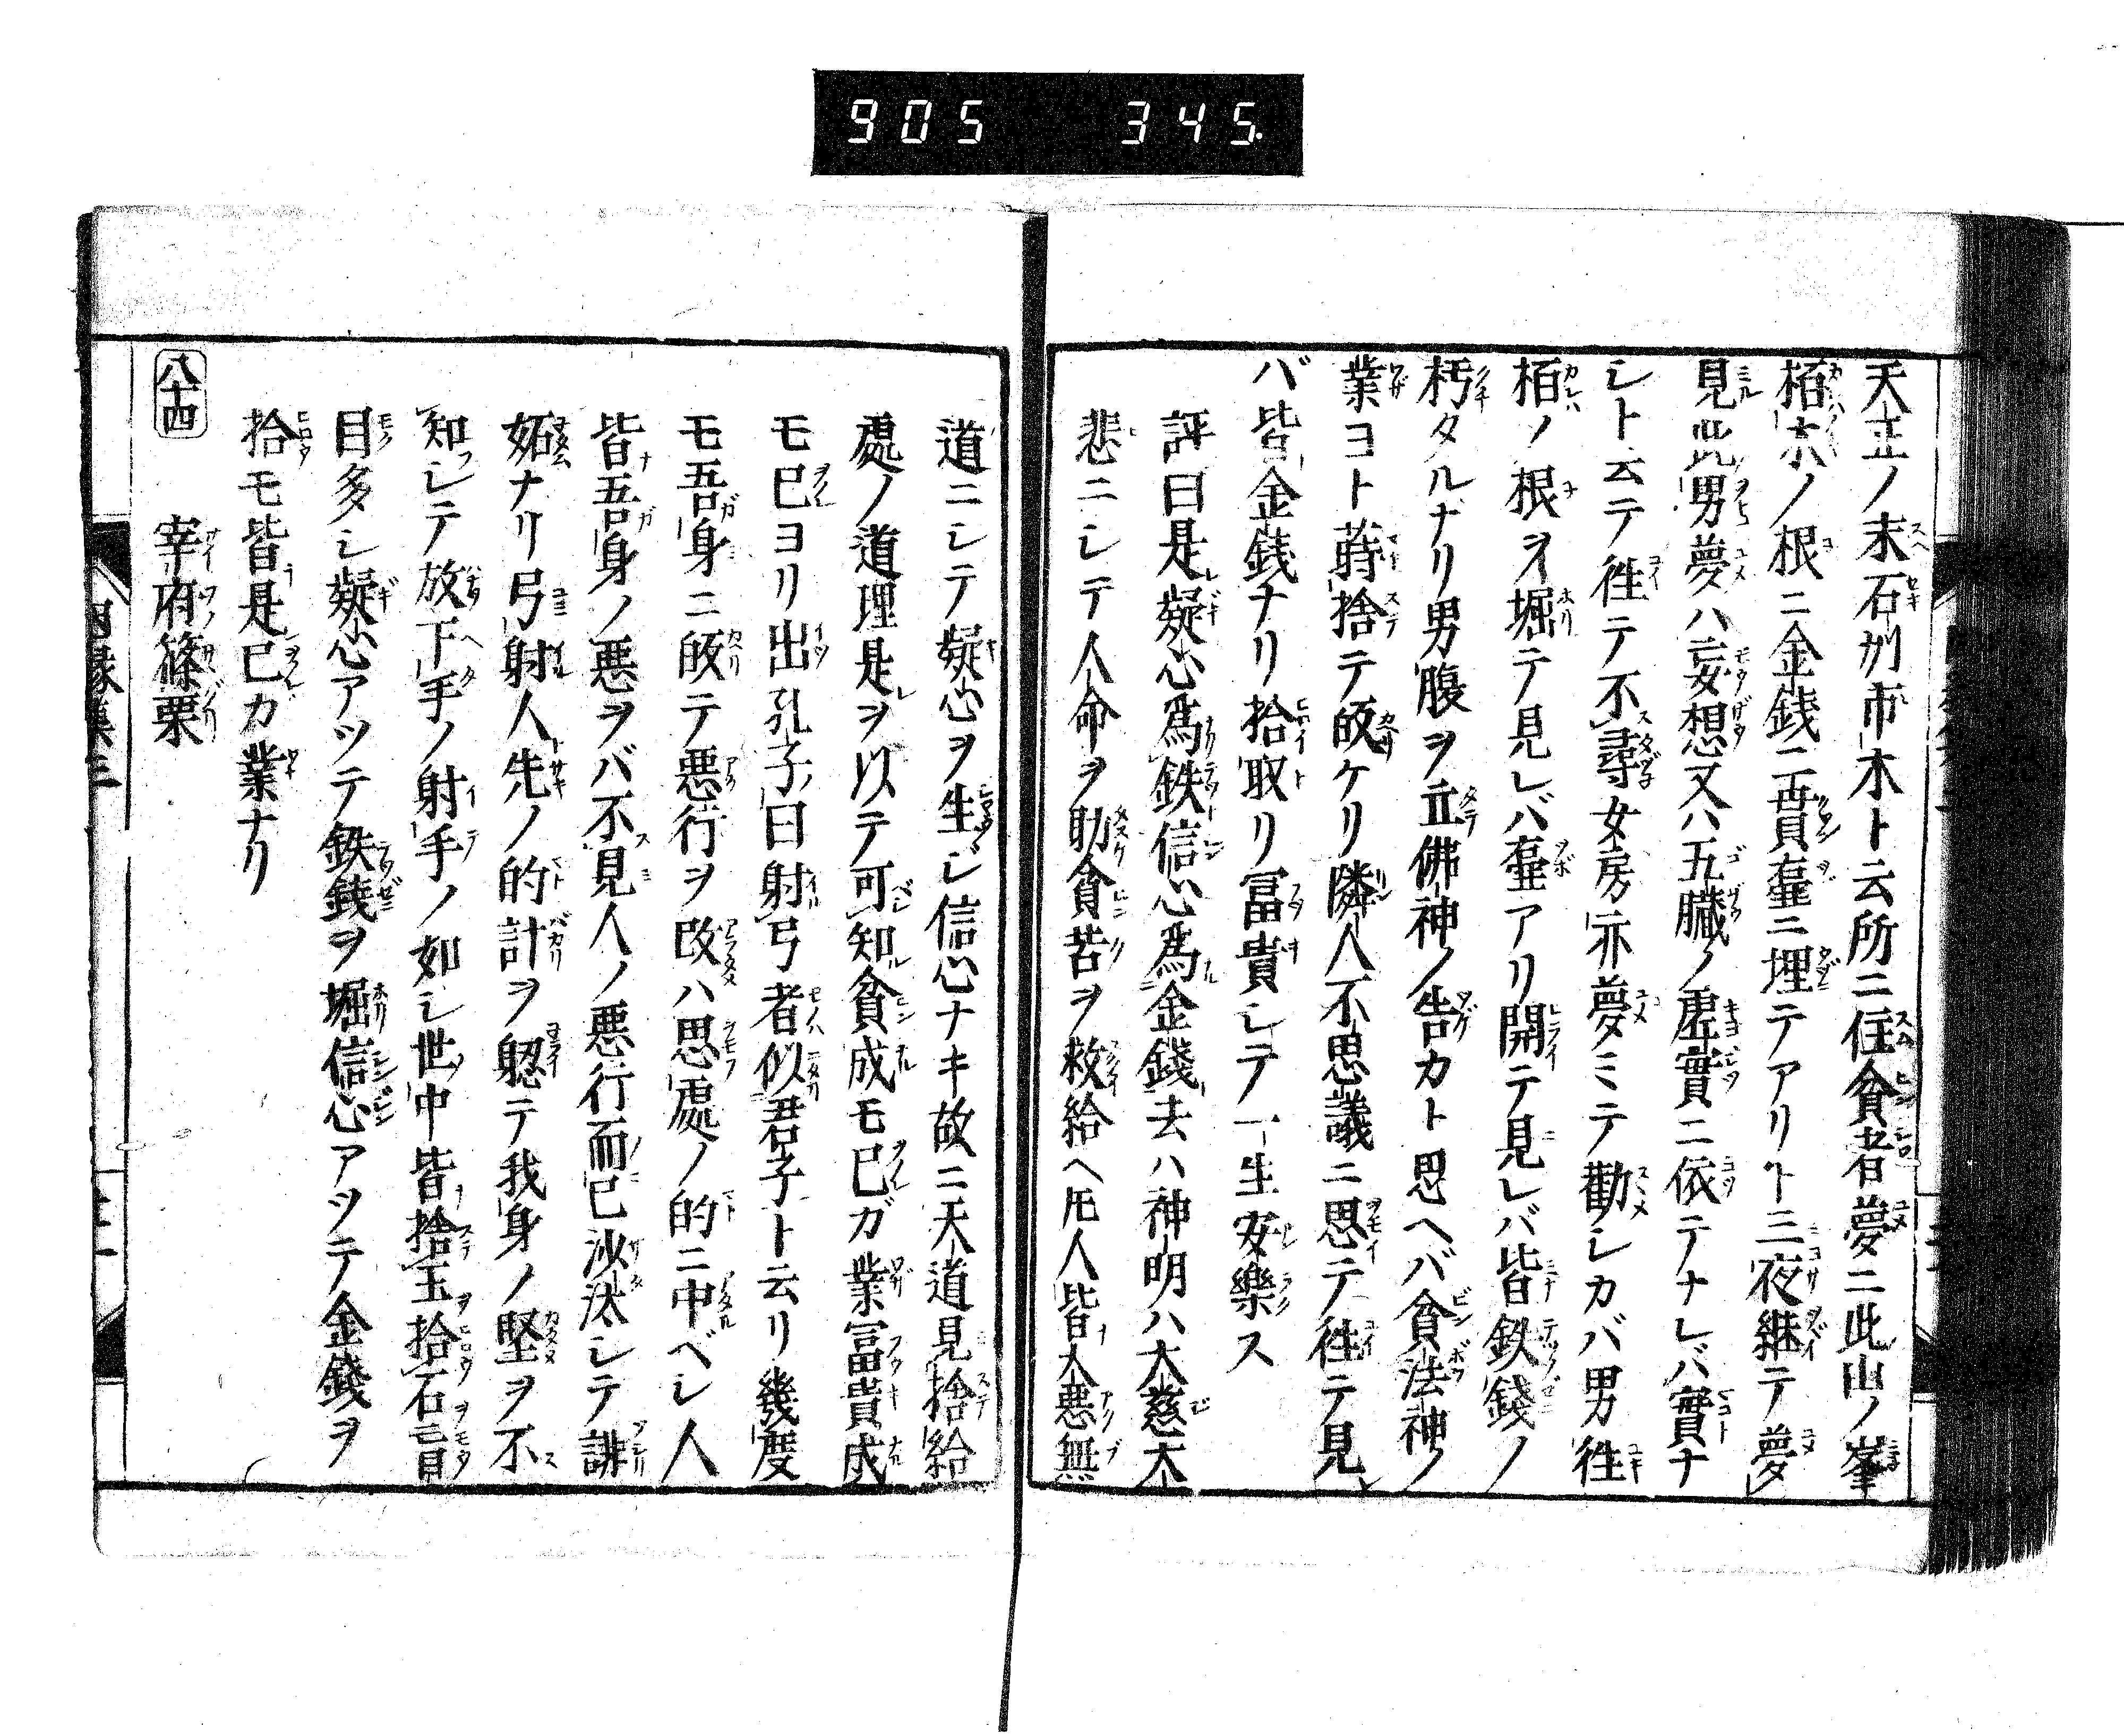 905 345.
天正ノ末石州市木ト云所ニ住貧者夢ニ此山ノ峯
栢木ノ根ニ金銭二貫壷ニ埋テアリト三夜継テ夢
見此男夢ハ妄想又ハ五臓ノ虚實ニ依テナレバ實ナ
シト云テ徃テ不尋女房亦夢ミテ勸シカバ男徃
栢ノ根ヲ堀テ見レバ壷アリ開テ見レバ皆鉄錢ノ
朽タルナリ男腹ヲ立佛神ノ告カト思ヘバ貧法神ノ
業ヨト蒔捨テ皈ケリ隣人不思議ニ思テ徃テ見レ
バ皆金銭ナリ拾取リ冨貴シテ一生安樂ス
評曰是疑心爲鉄信心爲金錢去ハ神明ハ大慈大
悲ニシテ人命ヲ助貧苦ヲ救給ヘ𪜈人皆大悪無
道ニシテ疑心ヲ生ジ信心ナキ故ニ天道見捨給
處ノ道理是ヲ以テ可知貧成モ已ガ業冨貴成
モ已ヨリ出孔子曰射弓者似君子ト云リ幾度
モ吾身ニ皈テ悪行ヲ改ハ思處ノ的ニ中ベシ人
皆吾身ノ悪ヲバ不見人ノ悪行而已沙汰シテ誹
妬ナリ弓射人先ノ的計ヲ睨テ我身ノ堅ヲ不
知シテ放下手ノ射手ノ如シ世中皆捨玉拾石盲
目多シ疑心アツテ鉄錢ヲ堀信心アツテ金錢ヲ
拾モ皆是已カ業ナリ
八十四 宰府篠栗
因縁集三